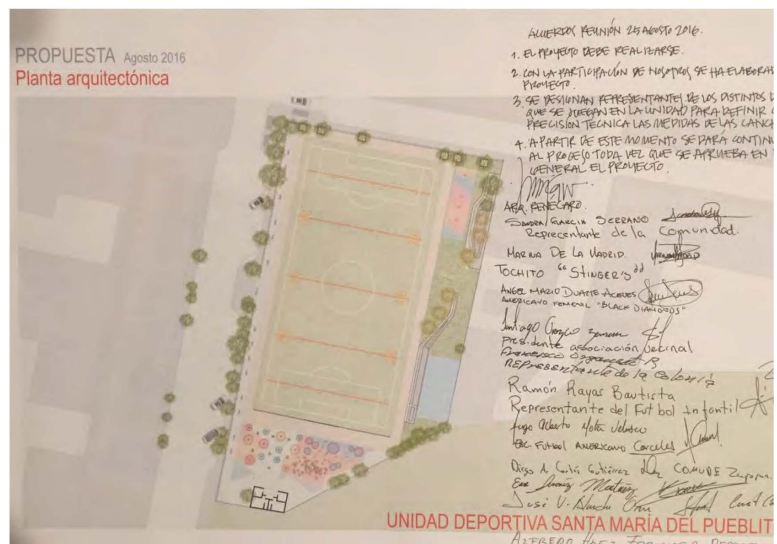 PROPUESTA Agosto 2016
Planta arquitectónica
ACUERDOS REUNIÓN 25 AGOSTO 2016.
1. EL PROYECTO DEBE REALIZARSE.
2. CON LA PARTICIPACIÓN DE NOSOTROS SE HA ELABORA
PROYECTO.
3. SE DESIGNAN REPRESENTANTES DE LOS DISTINTOS
QUE SE JUEGAN EN LA UNIDAD PARA DEFINIR
PRECISIÓN TECNICA LAS MEDIDAS DE LAS CANCH
4. A PARTIR DE ESTE MOMENTO SE DARÁ CONTINU
AL PROCESO TODA VEZ QUE SE APRUEBA EN
GENERAL EL PROYECTO.
ARQ. RENE CARO
SANDRA GARCIA SERRANO
Reprecentante de la Comunidad.
MARINA DE LA MADRID
TOCHITO "STINGER'S"
ANGEL MARIO DUARTE ACEVES
AMERICANO FEMENIL "BLACK DIAMONDS"
Santiago Orozco
Presidente asociación vecinal
Francisco
REPRESENTANTE de la Colonia
Ramón Rayas Bautista
Representante del Futbol Infantil
Hugo Alberto Mota Velasco
FUTBOL AMERICANO Carceles
Diego A. Gutiérrez COMUDE Zapopan
José V.
UNIDAD DEPORTIVA SANTA MARÍA DEL PUEBLIT
ALFREDO